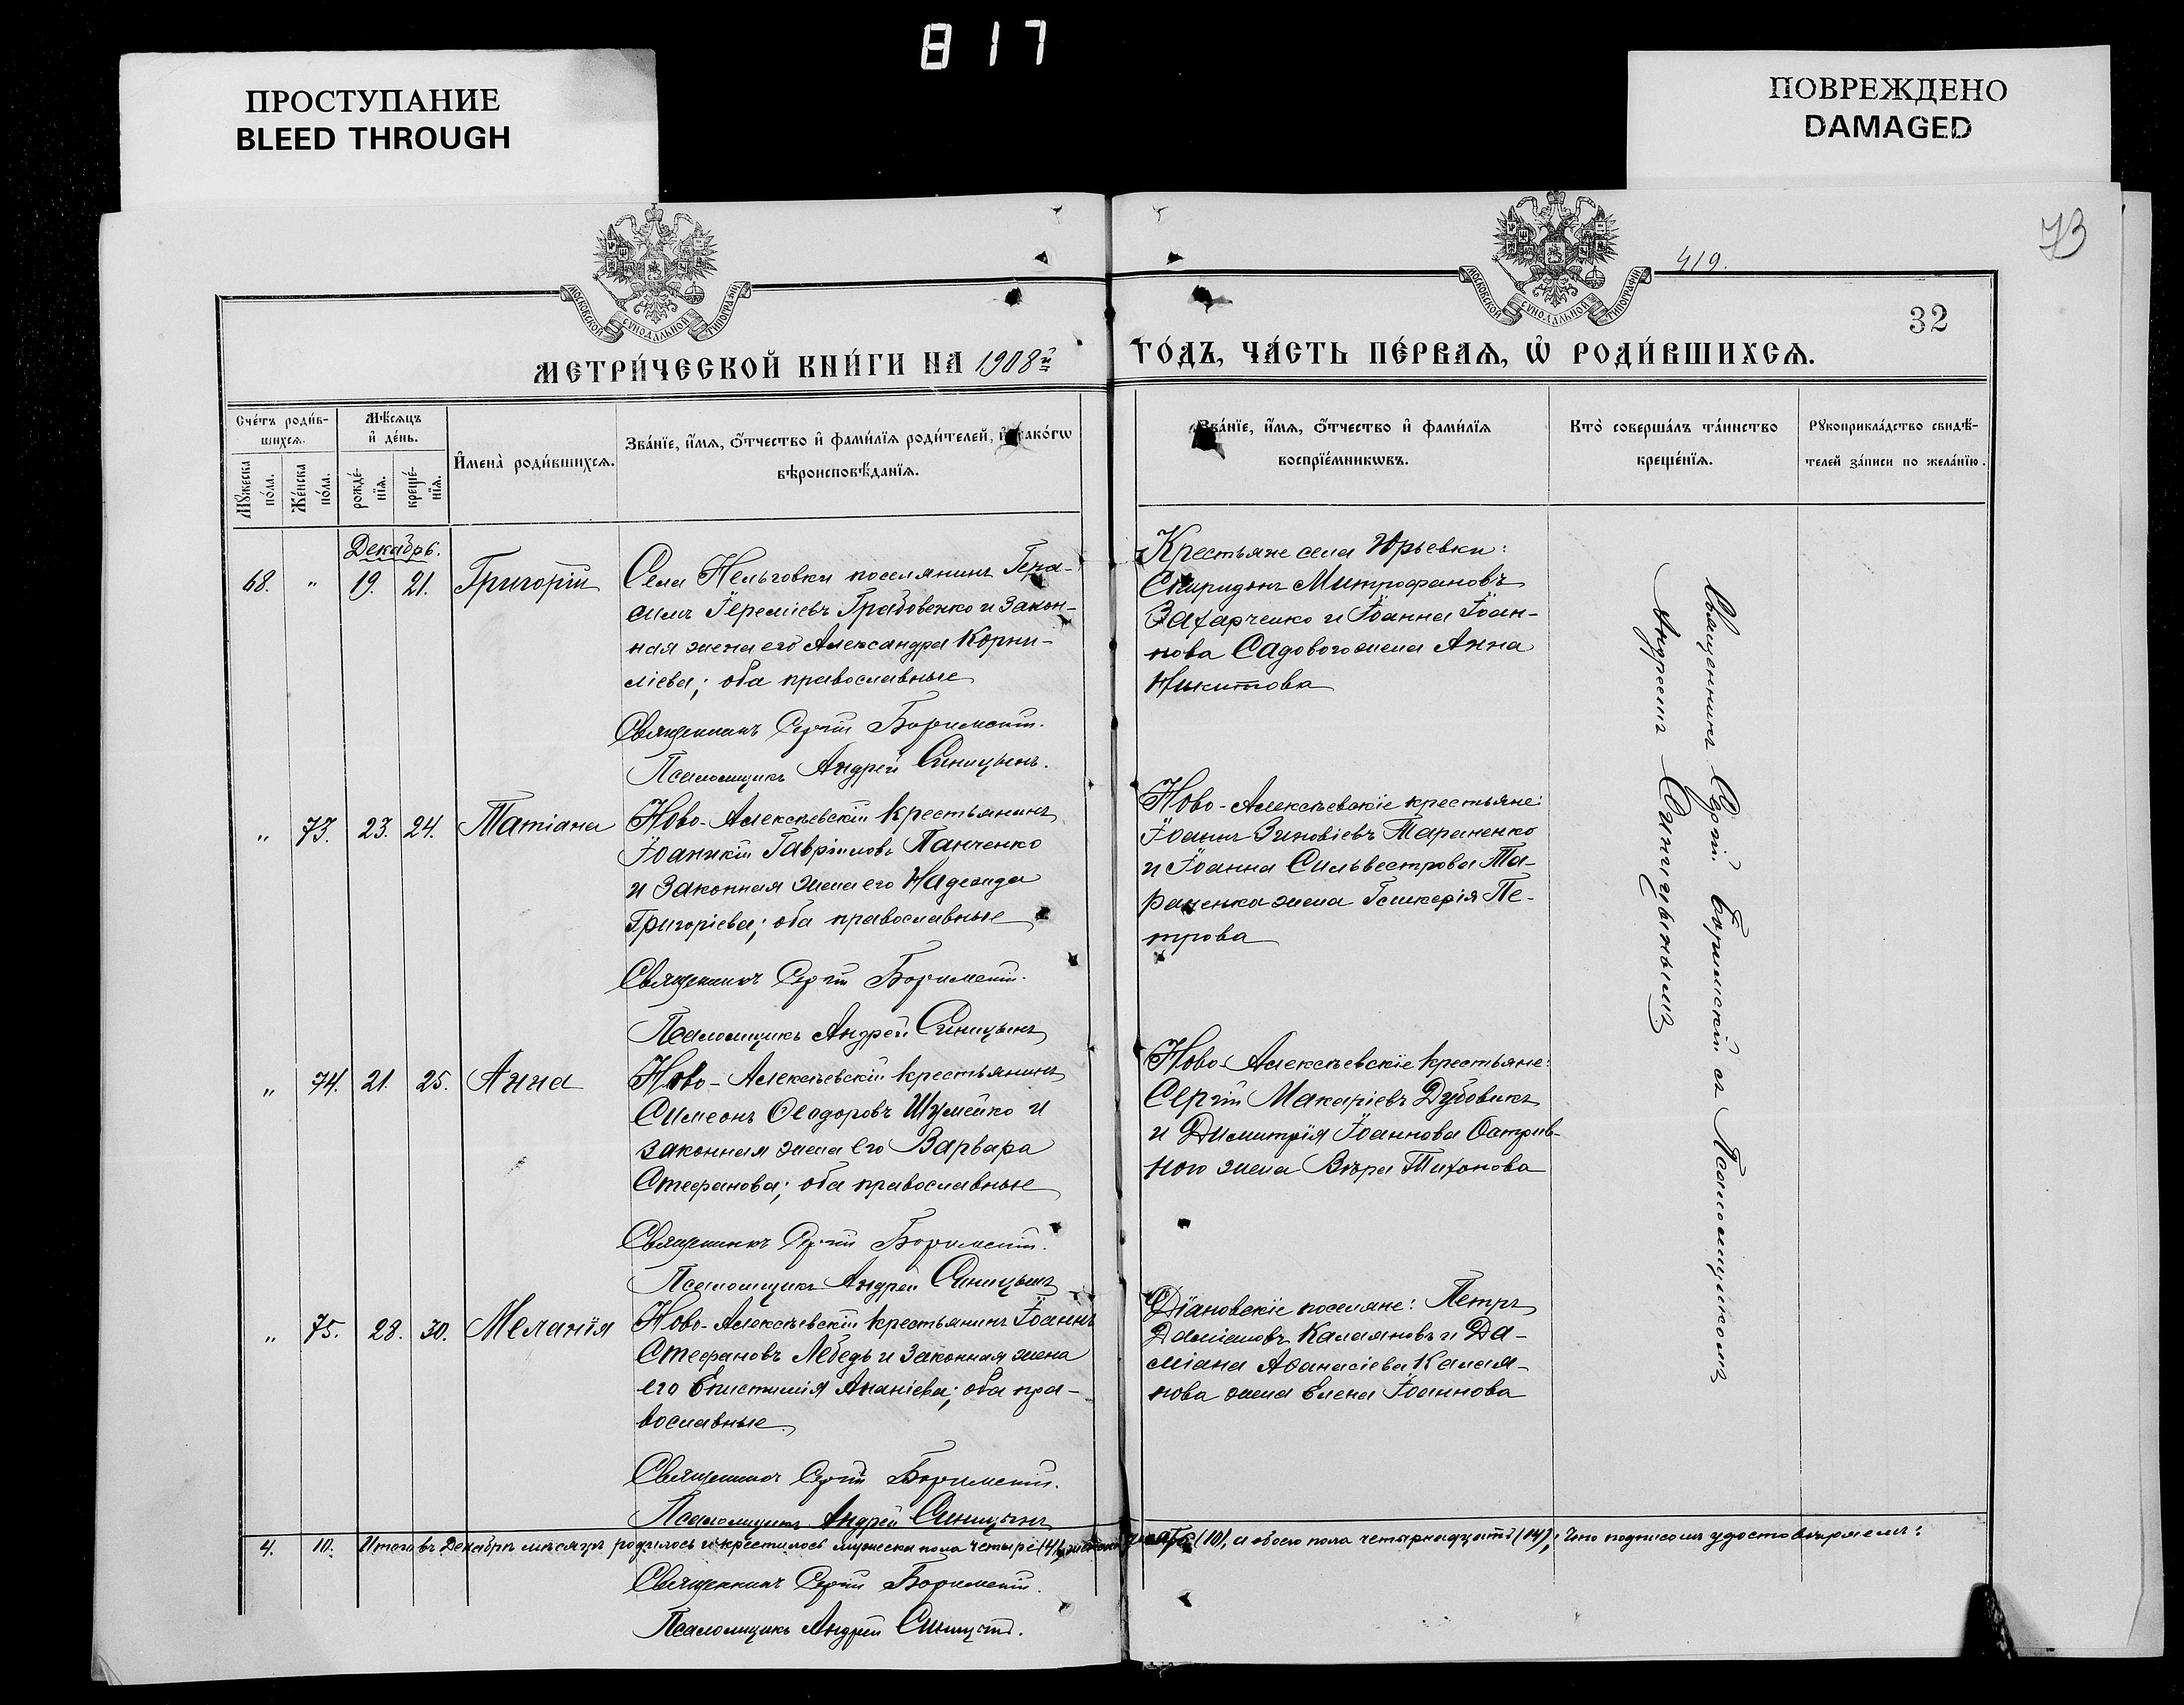 817
ПРОСТУПАНИЕ
BLEED THROUGH
ПОВРЕЖДЕНО
DAMAGED
73
419.
32
МОСКОВСКОЙ СѴНОДАЛЬНОЙ ТИПОГРАФІИ
МОСКОВСКОЙ СѴНОДАЛЬНОЙ ТИПОГРАФІИ
МЕТРИ́ЧЕСКОЙ КНИ́ГИ НА 1908й
ГО́ДЪ, ЧА́СТЬ ПЕ́РВАѦ, Ѡ҆ РОДИ́ВШИХСѦ.
Сче́тъ роди́в-
шихсѧ.
Мꙋ́жеска
по́ла.
Же́нска
по́ла.
Мѣ́сѧцъ
и҆ де́нь.
рожде́-
нїѧ.
креще́-
нїѧ.
И҆мена̀ роди́вшихсѧ.
Зва́нїе, и҆́мѧ, ѻ҆́тчество и҆ фами́лїѧ роди́телей, и҆ како́гѡ
вѣроисповѣ́данїѧ.
Зва́нїе, и҆́мѧ, ѻ҆́тчество и҆ фами́лїѧ
воспрїе́мникѡвъ.
Кто̀ соверша́лъ та́инство
креще́нїѧ.
Рꙋкоприкла́дство свидѣ́-
телей за́писи по жела́нїю.
Декабрь.
68. " 19. 21. Григорій
Села Нельговки поселянинъ Гера-
симъ Іереміевъ Грабовенко и закон-
ная жена его Александра Корни-
ліева; оба православные
Священникъ Сергій
Псаломщикъ Андрей Синицынъ.
Крестьяне села Юрьевки:
Спиридонъ Митрофановъ
Захарченко и Іоанна Іоан-
нова Садового жена Анна
Никитова
" 73. 23. 24. Татіана
Ново-Алексѣевскій крестьянинъ
Іоанникій Гавріиловъ Панченко
и законная жена его Надежда
Григоріева; оба православные
Священникъ Сергій
Псаломщикъ Андрей Синицынъ
Ново-Алексѣевскіе крестьяне:
Іоаннъ Зиновіевъ Тараненко
и Іоанна Сильвестрова Та-
раненка жена Гликерія Пе-
трова
" 74. 21. 25. Анна
Ново-Алексѣевскій крестьянинъ
Симеонъ Ѳеодоровъ Шумейко и
законная жена его Варвара
Стефанова; оба православные
Священникъ Сергій
Псаломщикъ Андрей Синицынъ
Ново-Алексѣевскіе крестьяне:
Сергій Макаріевъ Дубовикъ
и Димитрія Іоаннова Острив-
ного жена Вѣра Тихонова
" 75. 28. 30. Меланія
Ново-Алексѣевскій крестьянинъ Іоаннъ
Стефановъ Лебедь и законная жена
его Епистимія Ананіева; оба пра-
вославные.
Священникъ Сергій
Псаломщикъ Андрей Синицынъ
Діановскіе поселяне: Петръ
Даміановъ Калаяновъ и Да-
міана Аѳанасіева Калая-
нова жена Елена Іоаннова
Священникъ Сергій съ Псаломщикомъ
Андреемъ Синицынымъ
4. 10. Итого въ Декабрѣ мѣсяцѣ родилось и крестилось мужеска пола четыре (4), женска десять (10), а обоего пола четырнадцать (14); что подписомъ удостовѣряемъ:
Священникъ Сергій
Псаломщикъ Андрей Синицынъ.